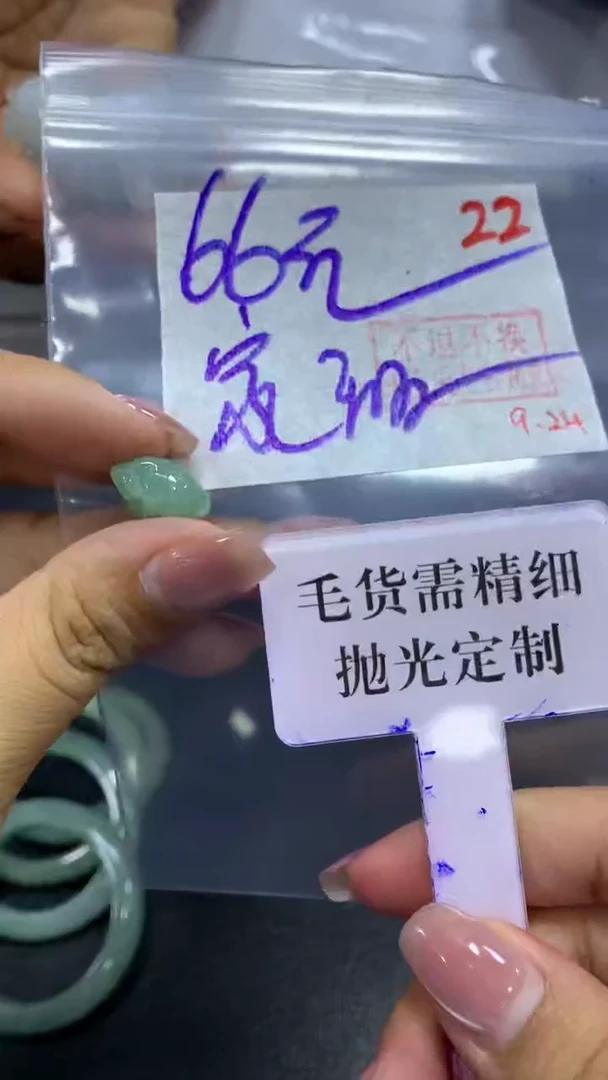 22
66元
定制
不退不换
9.24
毛货需精细
抛光定制